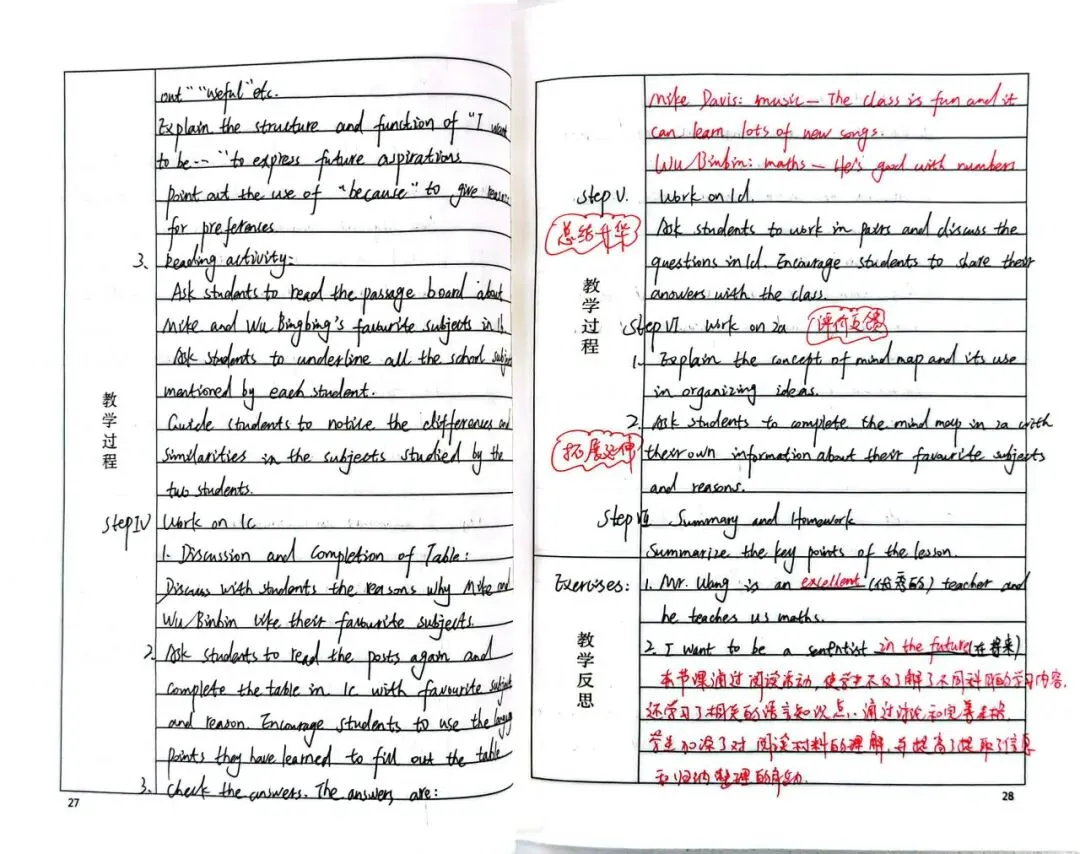 out" "useful" etc.
Explain the structure and function of "I want
to be--" to express future aspirations.
Point out the use of "because" to give reasons
for preferences.
3. Reading activity:
Ask students to read the passage board about
Mike and Wu Bingbing's favourite subjects in 1b.
Ask students to underline all the school subject
mentioned by each student.
Guide students to notice the differences and
similarities in the subjects studied by the
two students.
教学过程
Step IV Work on 1c
1. Discussion and Completion of Table:
Discuss with students the reasons why Mike and
Wu Binbin like their favourite subjects.
2. Ask students to read the posts again and
complete the table in 1c with favourite subject
and reason. Encourage students to use the
points they have learned to fill out the table
3. Check the answers. The answers are:
27
Mike Davis: music — The class is fun and it
can learn lots of new songs.
Wu Binbin: maths — He's good with numbers
Step V. Work on 1d.
总结升华
Ask students to work in pairs and discuss the
questions in 1d. Encourage students to share their
answers with the class.
教学过程
Step VI Work on 2a 评价反馈
1. Explain the concept of mind map and its use
in organizing ideas.
2. Ask students to complete the mind map in 2a with
拓展延伸
their own information about their favourite subjects
and reasons.
Step VII Summary and Homework
Summarize the key points of the lesson.
Exercises: 1. Mr. Wang is an excellent (优秀的) teacher and
he teaches us maths.
教学反思
2. I want to be a in the future (在将来)
本节课通过阅读活动,使学生不仅了解了不同科目的学习内容,
还学习了相关的语言知识点,通过讨论和完善表格,
学生加深了对阅读材料的理解,并提高了提取信息
和归纳整理的能力.
28